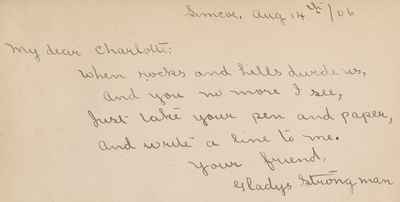 Simcoe, Aug 14th/06
My dear Charlotte:
When rocks and hills divide us,
And you no more I see,
Just take your pen and paper,
And write a line to me.
Your friend,
Gladys Strongman